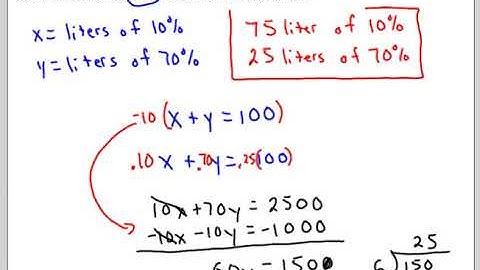 x = liters of 10%
y = liters of 70%
75 liters of 10%
25 liters of 70%
-10(x + y = 100)
.10x + .70y = .25(100)
10x + 70y = 2500
-10x - 10y = -1000
60y = 1500
25
6 150